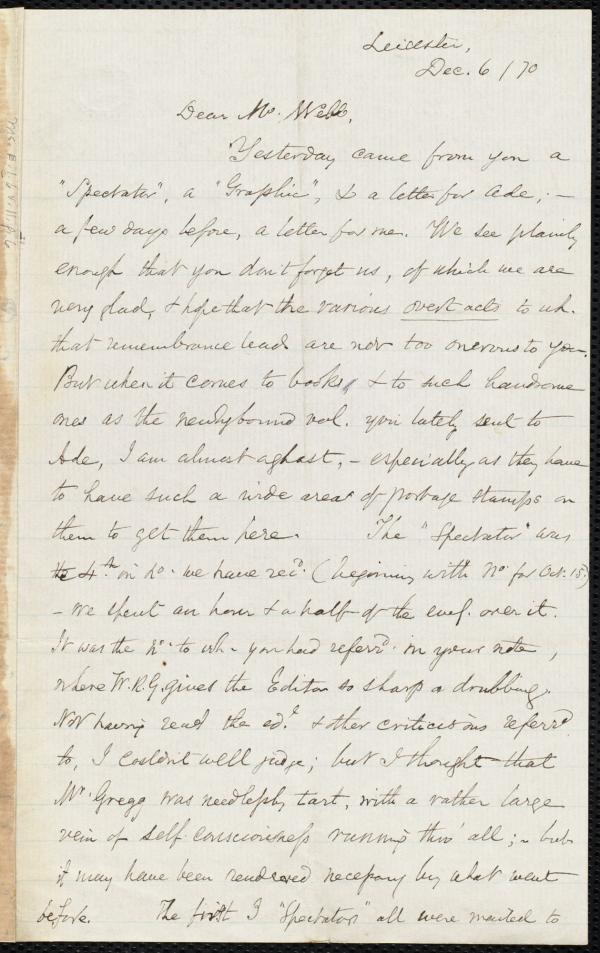 Leicester,
Dec. 6 / 70
Dear Mr. Webb,
Yesterday came from you a
"Spectator", a "Graphic", & a letter for Ade; —
a few days before, a letter for me. We see plainly
enough that you don't forget us, of which we are
very glad, & hope that the various overt acts to wh.
that remembrance leads are not too onerous to you.
But when it comes to books, & to such handsome
ones as the newly bound vol. you lately sent to
Ade, I am almost aghast, — especially as they have
to have such a wide area of postage stamps on
them to get them here. The "Spectator" was
the 4th on no. we have recd. (beginning with No. for Oct. 15.)
— We spent an hour & a half of the eveg. over it.
It was the no. to wh. you had referrd. in your note,
where W.R.G. gives the Editor so sharp a drubbing.
Not having read the edl. & other criticisms referrd.
to, I couldn't well judge; but I thought that
Mr. Gregg was needlessly tart, with a rather large
vein of self consciousness running thro' all; — but
it may have been rendered necessary by what went
before. The first 3 "Spectators" all were mailed to